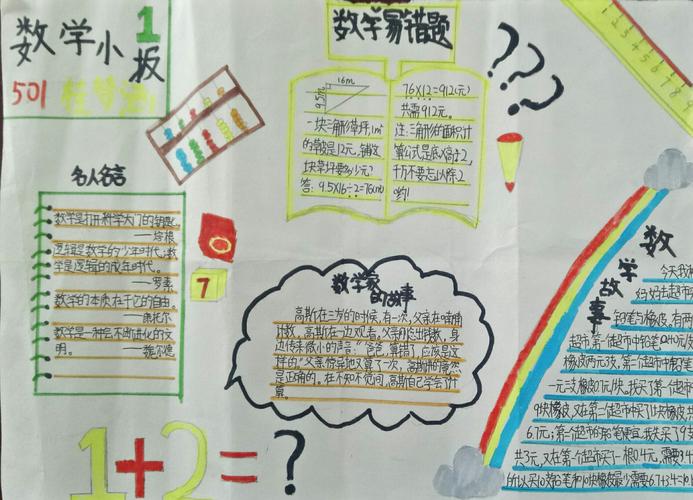 数学小报
1
501
数学易错题
16m
9.5m
一块三角形草坪,1m²
的草皮是12元,铺这
块草坪要多少元?
答: 9.5×16÷2=76(m²)
76×12=912(元)
共需912元。
注:三角形的面积计
算公式是底×高÷2,
千万不要忘以除2
哟!
???
名人名言
数学是打开科学大门的钥匙。
——培根
逻辑是数学的少年时代,数
学是逻辑的成年时代。
——罗素
数学的本质在于它的自由。
——康托尔
数学是一种会不断进化的文
明。
——魏尔德
7
数学家
的故事
高斯在三岁的时候,有一次,父亲在啃角
计数,高斯在一边观看,父亲刚念出钱数,身
边传来微小的声音:“爸爸,算错了,应该是这
样的”父亲惊异地又算了一次,高斯和的竟然
是正确的。在不知不觉间,高斯自己学会了计
算。
数学故事
今天我和
妈妈去超市
铅笔与橡皮,有两
超市,第一佳超市中铅笔0.40元/支
橡皮两元3块,第二个超市中都笔
一元3支橡皮0.7元/块,我买了第一超市
9块橡皮,又在第二个超市中买了1块橡皮,共
6.7元;第二个超市的铅笔便宜,我先买了9支
共3元,又在第一个超市买了一根0.4元,需要3.4
所以买10支铅笔和10块橡皮最少需要6.7+3.4=10.1
1+2=?
1 2 3 4 5 6 7 8